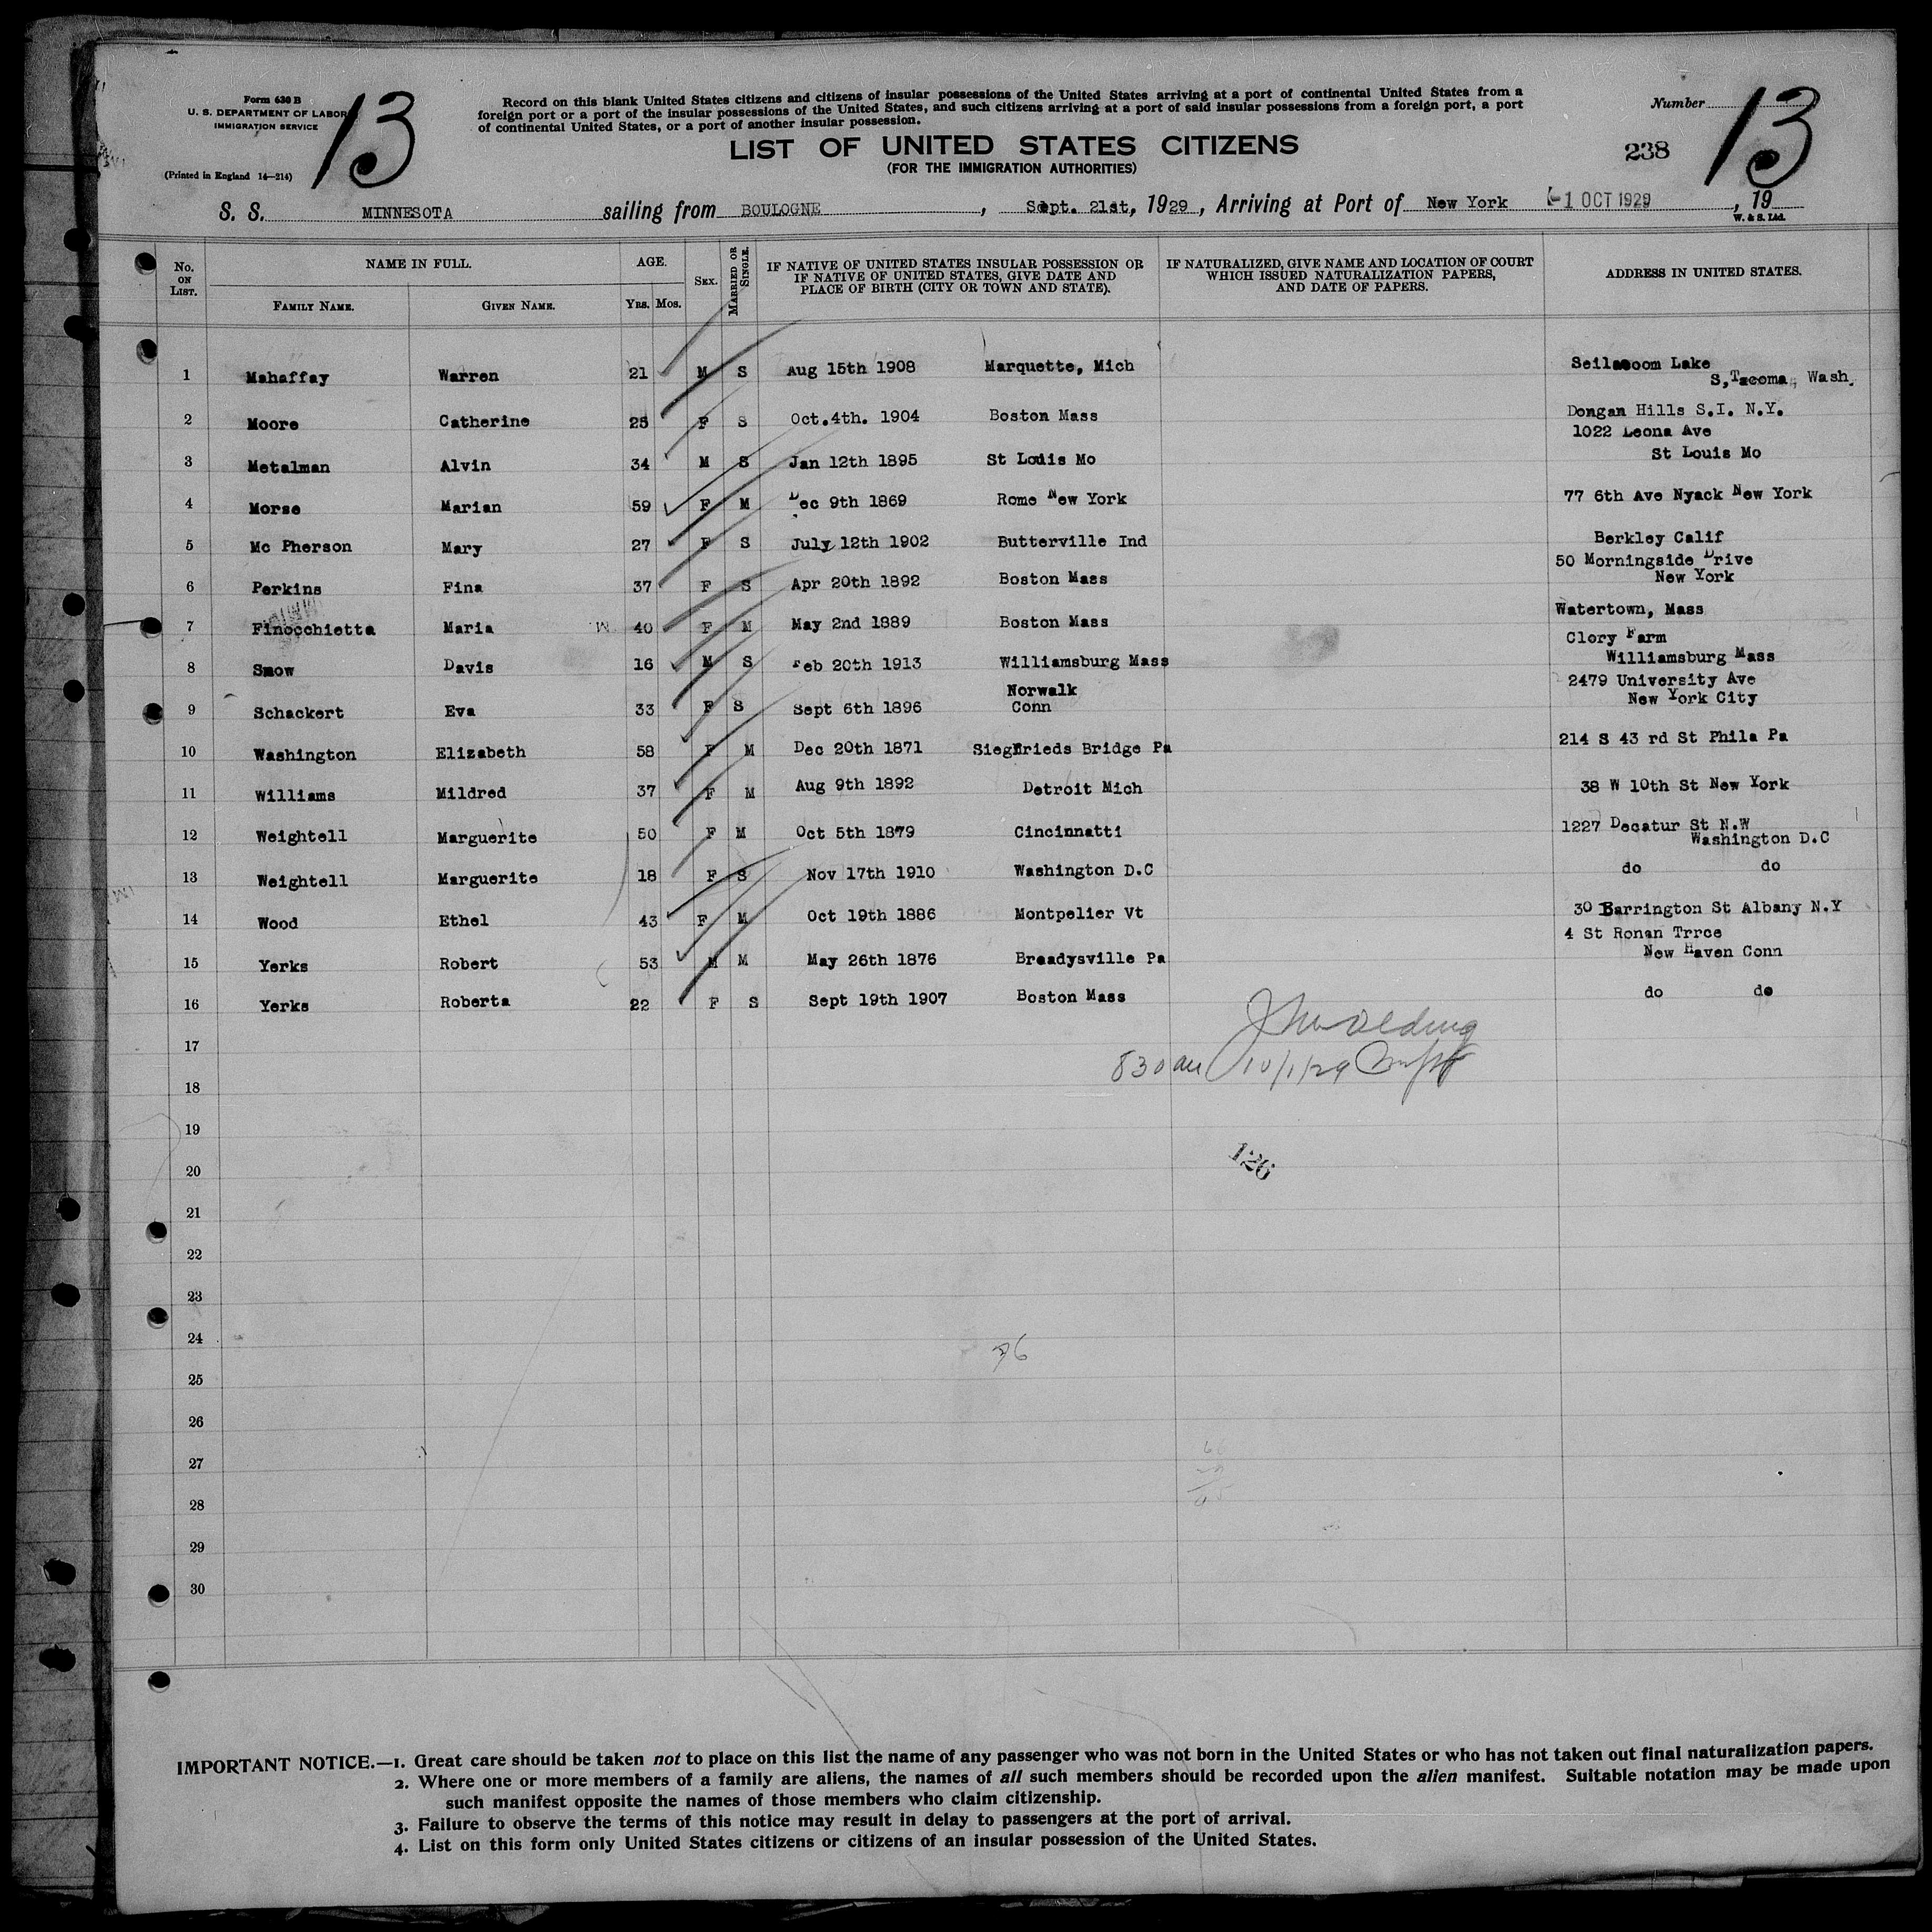 Form 630 B
U. S. DEPARTMENT OF LABOR
IMMIGRATION SERVICE
(Printed in England 14—214)
13
Record on this blank United States citizens and citizens of insular possessions of the United States arriving at a port of continental United States from a
foreign port or a port of the insular possessions of the United States, and such citizens arriving at a port of said insular possessions from a foreign port, a port
of continental United States, or a port of another insular possession.
LIST OF UNITED STATES CITIZENS
(FOR THE IMMIGRATION AUTHORITIES)
Number
13
238
S. S. MINNESOTA sailing from BOULOGNE, Sept. 21st, 1929, Arriving at Port of New York -1 OCT 1929, 19
W. & S. Ltd.
No. ON LIST.
NAME IN FULL.
FAMILY NAME. GIVEN NAME.
AGE.
YRS. MOS.
SEX.
MARRIED OR SINGLE.
IF NATIVE OF UNITED STATES INSULAR POSSESSION OR
IF NATIVE OF UNITED STATES, GIVE DATE AND
PLACE OF BIRTH (CITY OR TOWN AND STATE).
IF NATURALIZED, GIVE NAME AND LOCATION OF COURT
WHICH ISSUED NATURALIZATION PAPERS,
AND DATE OF PAPERS.
ADDRESS IN UNITED STATES.
1 Mahaffay Warren 21 M S Aug 15th 1908 Marquette, Mich Seilacoom Lake
S,Tacoma, Wash.
2 Moore Catherine 25 F S Oct.4th. 1904 Boston Mass Dongan Hills S.I. N.Y.
1022 Leona Ave
3 Metalman Alvin 34 M S Jan 12th 1895 St Louis Mo St Louis Mo
4 Morse Marian 59 F M Dec 9th 1869 Rome New York 77 6th Ave Nyack New York
5 Mc Pherson Mary 27 F S July 12th 1902 Butterville Ind Berkley Calif
50 Morningside Drive
6 Perkins Fina 37 F S Apr 20th 1892 Boston Mass New York
7 Finocchietta Maria 40 F M May 2nd 1889 Boston Mass Watertown, Mass
Clory Farm
8 Snow Davis 16 M S Feb 20th 1913 Williamsburg Mass Williamsburg Mass
2479 University Ave
9 Schackert Eva 33 F S Sept 6th 1896 Norwalk Conn New York City
10 Washington Elizabeth 58 F M Dec 20th 1871 Siegfrieds Bridge Pa 214 S 43 rd St Phila Pa
11 Williams Mildred 37 F M Aug 9th 1892 Detroit Mich 38 W 10th St New York
12 Weightell Marguerite 50 F M Oct 5th 1879 Cincinnatti 1227 Decatur St N.W
Washington D.C
13 Weightell Marguerite 18 F S Nov 17th 1910 Washington D.C do do
14 Wood Ethel 43 F M Oct 19th 1886 Montpelier Vt 30 Barrington St Albany N.Y
4 St Ronan Trrce
15 Yerks Robert 53 M M May 26th 1876 Breadysville Pa New Haven Conn
16 Yerks Roberta 22 F S Sept 19th 1907 Boston Mass do do
17
830 am 10/1/29
18
19
126
20
21
22
23
24
96
25
26
27
28
29
30
IMPORTANT NOTICE.—1. Great care should be taken not to place on this list the name of any passenger who was not born in the United States or who has not taken out final naturalization papers.
2. Where one or more members of a family are aliens, the names of all such members should be recorded upon the alien manifest. Suitable notation may be made upon
such manifest opposite the names of those members who claim citizenship.
3. Failure to observe the terms of this notice may result in delay to passengers at the port of arrival.
4. List on this form only United States citizens or citizens of an insular possession of the United States.